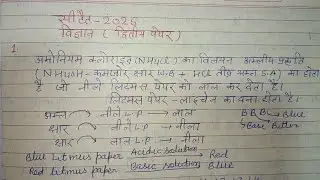 सीटैट - 2026
विज्ञान ( द्वितीय पेपर )
1
अमोनियम क्लोराइड (NH4Cl) का विलयन अम्लीय प्रकृति
( NH4OH - कमजोर क्षार W.B - HCl तीव्र अम्ल S.A ) का होता
है जो नीले लिटमस पेपर को लाल कर देता है।
लिटमस पेपर - लाइकेन का बना होता है।
अम्ल → नीले L.P → लाल B B R → Blue
क्षार → नीले L.P → नीला Base Bitter
क्षार → लाल L.P → नीला
Blue Litmus paper Acidic solution → Red
Red Litmus paper Basic solution Blue